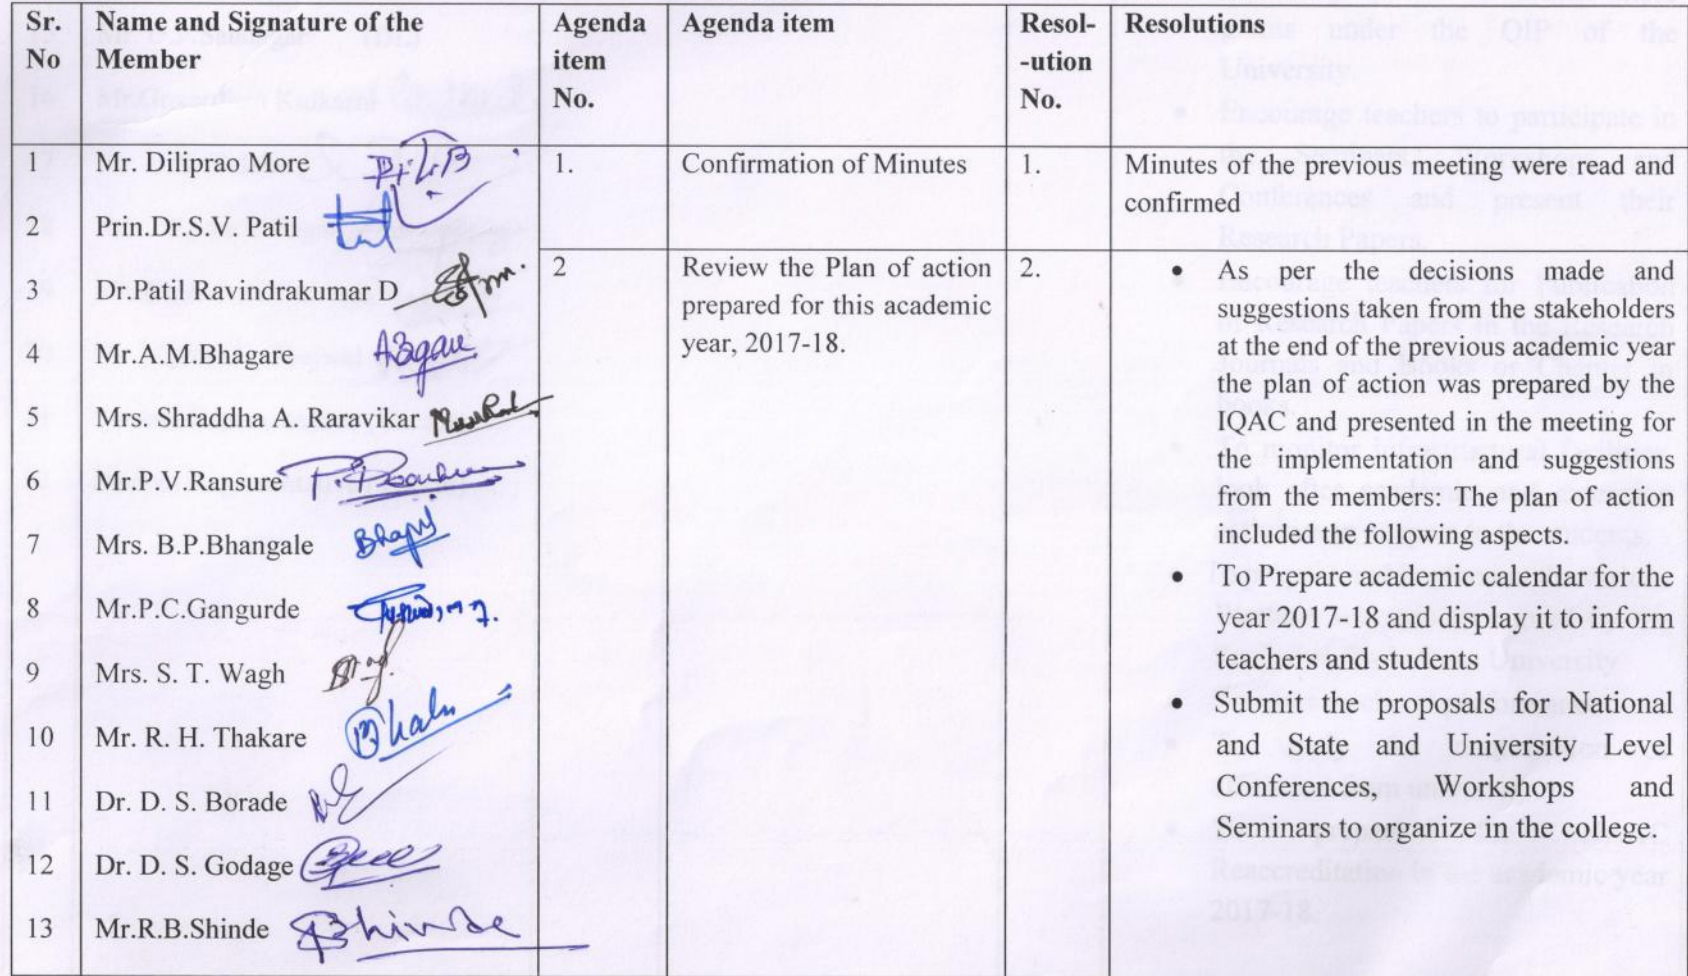 Sr. No
Name and Signature of the Member
Agenda item No.
Agenda item
Resol- -ution No.
Resolutions
1 Mr. Diliprao More
2 Prin.Dr.S.V. Patil
3 Dr.Patil Ravindrakumar D
4 Mr.A.M.Bhagare
5 Mrs. Shraddha A. Raravikar
6 Mr.P.V.Ransure
7 Mrs. B.P.Bhangale
8 Mr.P.C.Gangurde
9 Mrs. S. T. Wagh
10 Mr. R. H. Thakare
11 Dr. D. S. Borade
12 Dr. D. S. Godage
13 Mr.R.B.Shinde
1.
Confirmation of Minutes
1.
Minutes of the previous meeting were read and
confirmed
2
Review the Plan of action
prepared for this academic
year, 2017-18.
2.
• As per the decisions made and
suggestions taken from the stakeholders
at the end of the previous academic year
the plan of action was prepared by the
IQAC and presented in the meeting for
the implementation and suggestions
from the members: The plan of action
included the following aspects.
• To Prepare academic calendar for the
year 2017-18 and display it to inform
teachers and students
• Submit the proposals for National
and State and University Level
Conferences, Workshops and
Seminars to organize in the college.